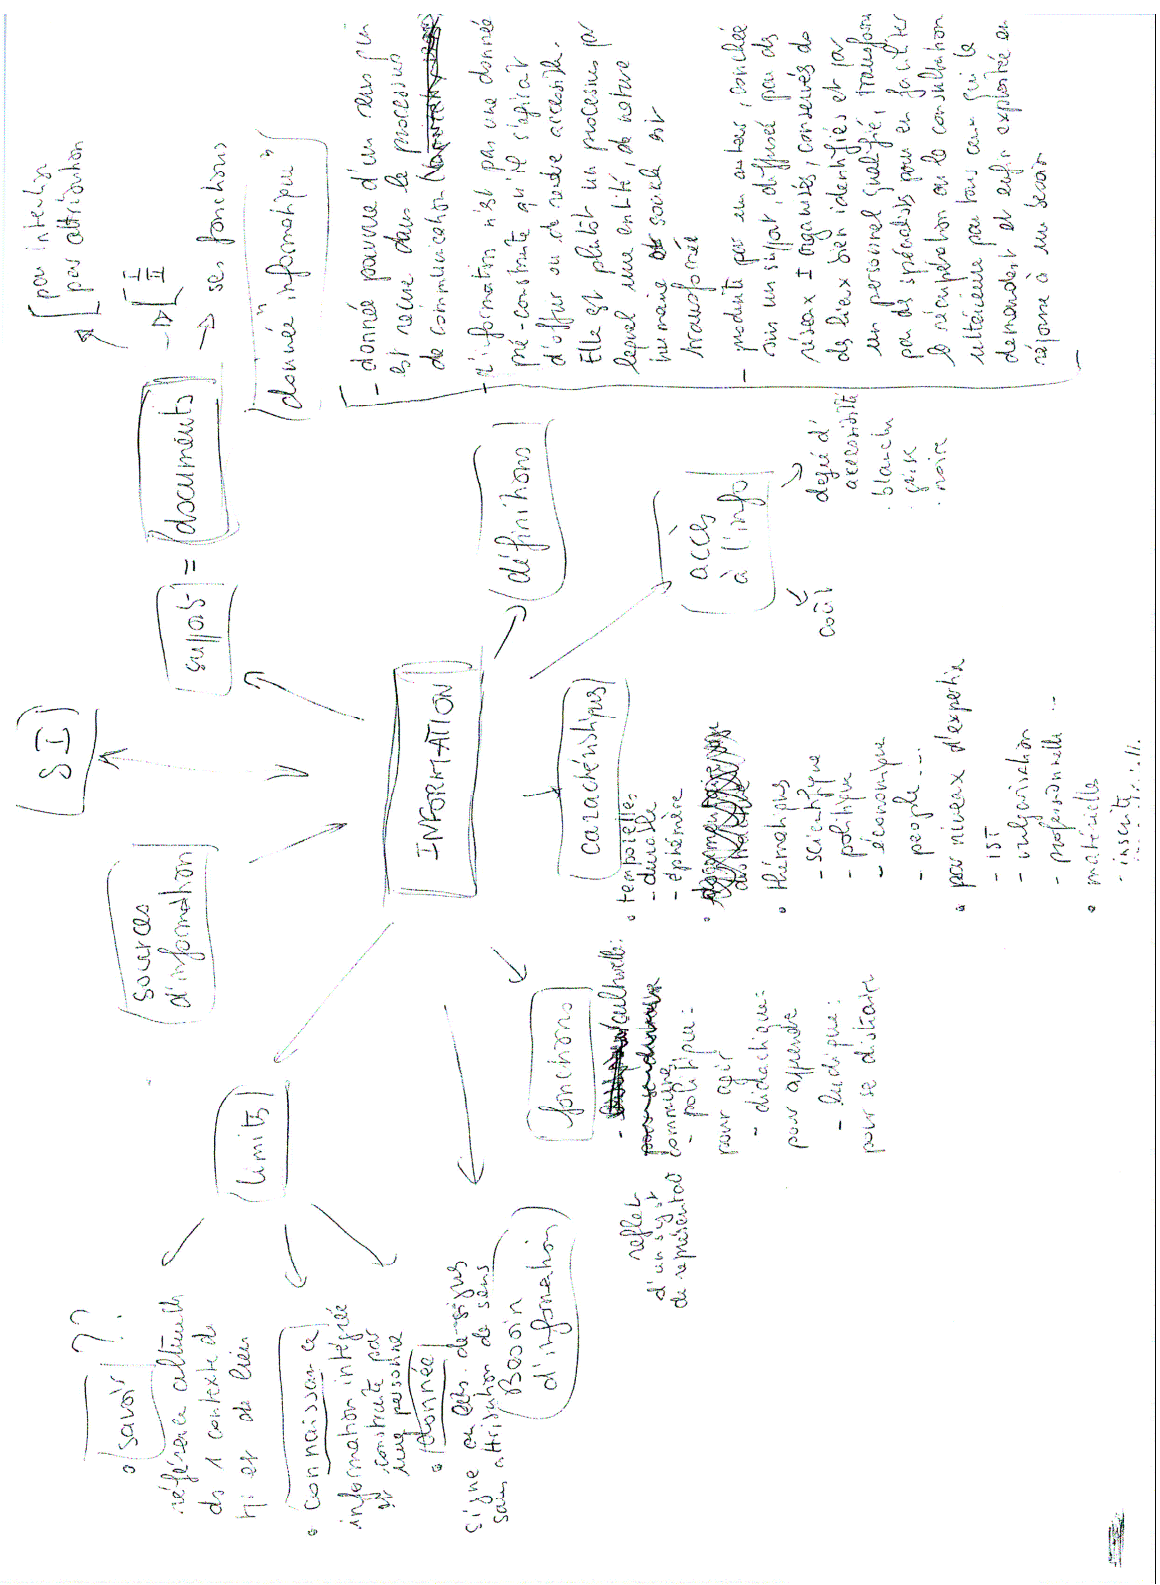 S I
par intention
par attribution
I
II
ses fonctions
support
=
documents
"donnée informatique"
sources
d'information
limites
INFORMATION
définitions
- donnée pourvue d'un sens qui
est reçue dans le processus
de communication
- l'information n'est pas une donnée
pré-construite qu'il s'agirait
d'offrir ou de rendre accessible.
Elle est plutôt un processus par
lequel une entité, de nature
humaine et sociale est
transformée
- produite par un auteur, couchée
sur un support, diffusée par des
réseaux ± organisés, conservés ds
des lieux bien identifiés et par
un personnel qualifié, transformé
par des spécialistes pour en faciliter
la récupération ou la consultation
ultérieure par tous ceux qui la
demandent et enfin exploitée en
réponse à un besoin
accès
à l'info
coût
degré d'
accessibilité
. blanche
. grise
. noire
caractéristiques
• temporelles
- durable
- éphémère
• thématiques
- scientifique
- politique
- économique
- people...
• par niveaux d'expertise
- IST
- vulgarisation
- professionnelle ...
• matérielles
- inscrite
fonctions
- culturelle:
reflet
d'un syst
de représentat° commune
- politique:
pour agir
- didactique:
pour apprendre
- ludique:
pour se distraire
Besoin
d'information
• savoir ??
référence culturelle
ds 1 contexte de
tps et de lieu
• connaissance
information intégrée
et construite par
une personne
• donnée
signe ou ens. de signes
sans attribution de sens